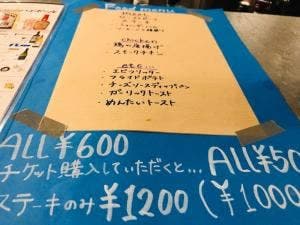 Food menu
chicken
・鶏の唐揚げ
・スモークチキン
etc...
・エビフリッター
・フライドポテト
・チーズソースディップパン
・ガーリックトースト
・めんたいトースト
ALL ¥600
チケット購入していただくと... ALL ¥50
ステーキのみ ¥1200 (¥1000